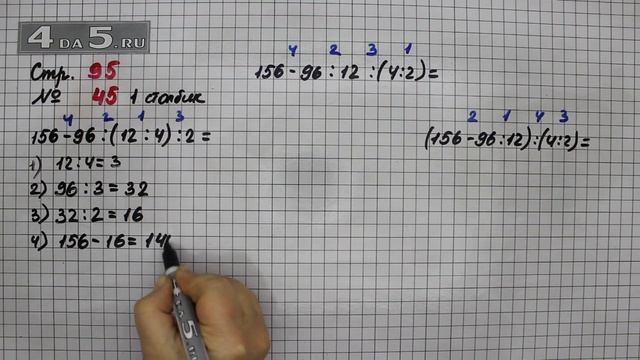 4DA5.RU
Стр. 95
№ 45 1 столбик
4 2 1 3
156-96:(12:4):2=
1) 12:4=3
2) 96:3=32
3) 32:2=16
4) 156-16=14
4 2 3 1
156-96:12:(4:2)=
2 1 4 3
(156-96:12):(4:2)=